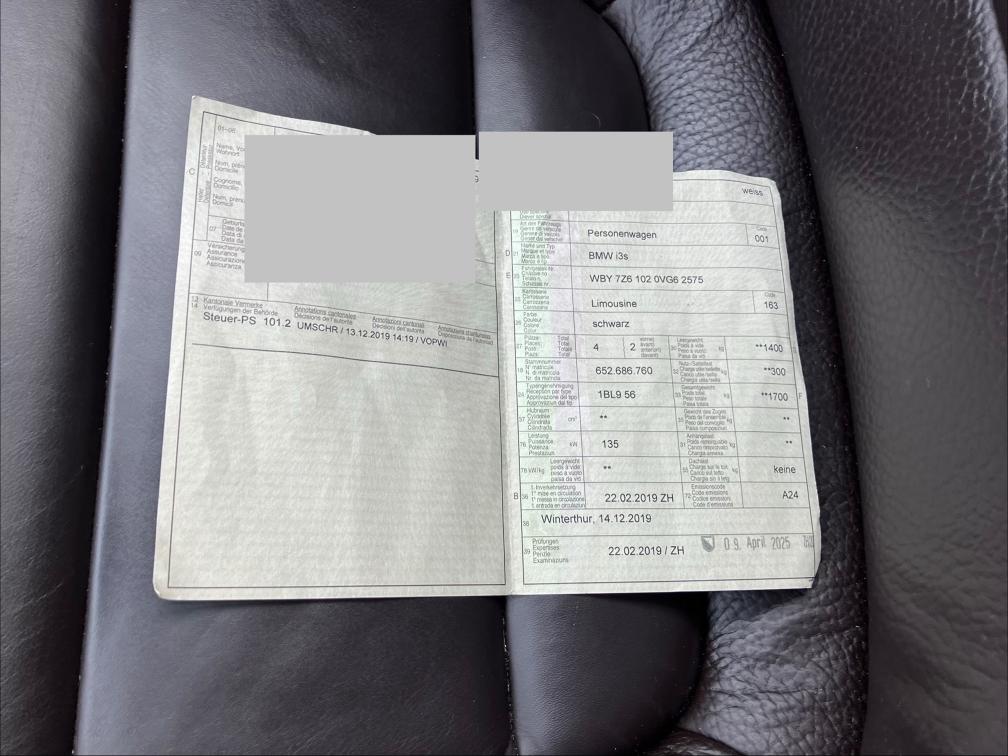 01-06
C
Name, Vo
Wohnort
Nom, prén
Domicile
Cognome,
Domicilio
Num, prenu
Domicil
07
Geburts
Date de
Data di
Data da
09
Versicherung
Assurance
Assicurazione
Assicuranza
13
14
Kantonale Vermerke
Verfügungen der Behörde
Annotations cantonales
Décisions de l'autorité
Annotazioni cantonali
Decisioni dell'autorità
Annotaziuns chantunalas
Disposiziuns da l'autoritad
Steuer-PS 101.2 UMSCHR / 13.12.2019 14:19 / VOPWI
weiss
19
Art des Fahrzeugs
Genre de véhicule
Genere di veicolo
Gener dal vehichel
Personenwagen
Code
001
D
21
Marke und Typ
Marque et type
Marca e tipo
Marca e tip
BMW i3s
E
23
WBY 7Z6 102 0VG6 2575
25
Karosserie
Carrosserie
Carrozzeria
Carossaria
Limousine
Code
163
26
Farbe
Couleur
Colore
Colur
schwarz
27
Plätze: Total
Places: Total
Posti: Totale
Plazs: Total
4
2
vorne)
avant)
anteriori)
davant)
30
Leergewicht
Poids à vide
Peso a vuoto
Paisa da vid
kg
**1400
18
Stammnummer
N° matricule
N. di matricola
Nr. da matricla
652.686.760
32
Nutz-/Sattellast
Charge utile/sellette
Carico utile/sella
Chargia utila/sella
kg
**300
24
Typengenehmigung
Réception par type
Approvazione del tipo
Approvaziun dal tip
1BL9 56
33
Gesamtgewicht
Poids total
Peso totale
Paisa totala
kg
**1700
F
37
Hubraum
Cylindrée
Cilindrata
Cilindrada
cm³
**
35
Gewicht des Zuges
Poids de l'ensemble
Peso del convoglio
Paisa cumposiziun
kg
**
76
Leistung
Puissance
Potenza
Prestaziun
kW
135
31
Anhängelast
Poids remorquable
Peso rimorchiabile
Chargia annexa
kg
**
78
kW/kg
Leergewicht
poids à vide
peso a vuoto
paisa da vid
**
55
Dachlast
Charge sur le toit
Carico sul tetto
Chargia sin il tetg
kg
keine
B
36
1. Inverkehrsetzung
1re mise en circulation
1a messa in circolazione
1. entrada en circulaziun
22.02.2019 ZH
72
Emissionscode
Code émissions
Codice emissioni
Code d'emissiuns
A24
38
Winterthur, 14.12.2019
39
Prüfungen
Expertises
Perizie
Examinaziuns
22.02.2019 / ZH
09. April 2025